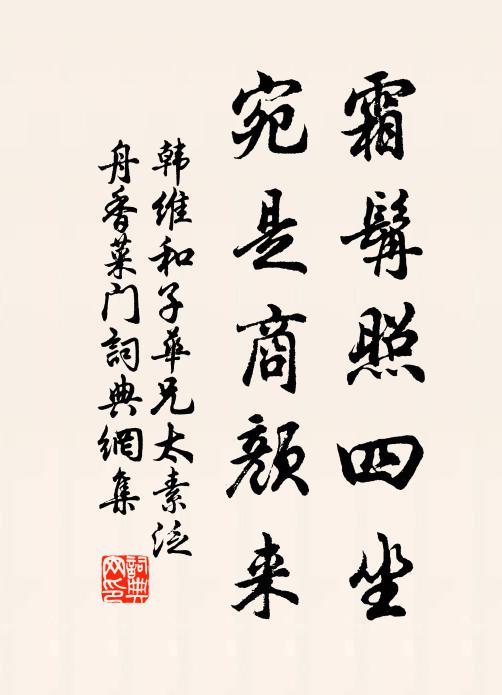 霜髯照四坐
宛是商颜来
韩维和子華兄太素泛
舟香菜门詞典網集
詞典网印